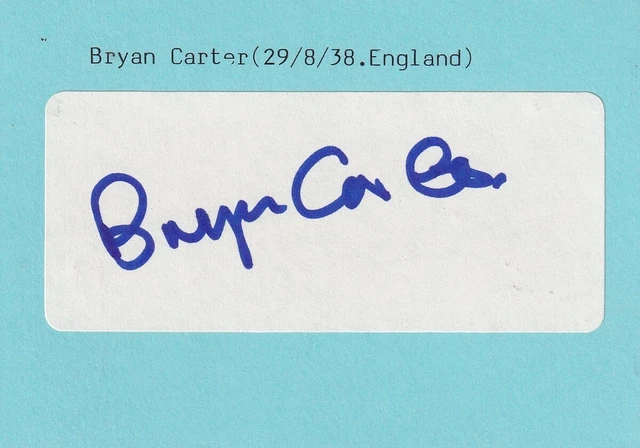 Bryan Carter(29/8/38.England)
Bryan Carter